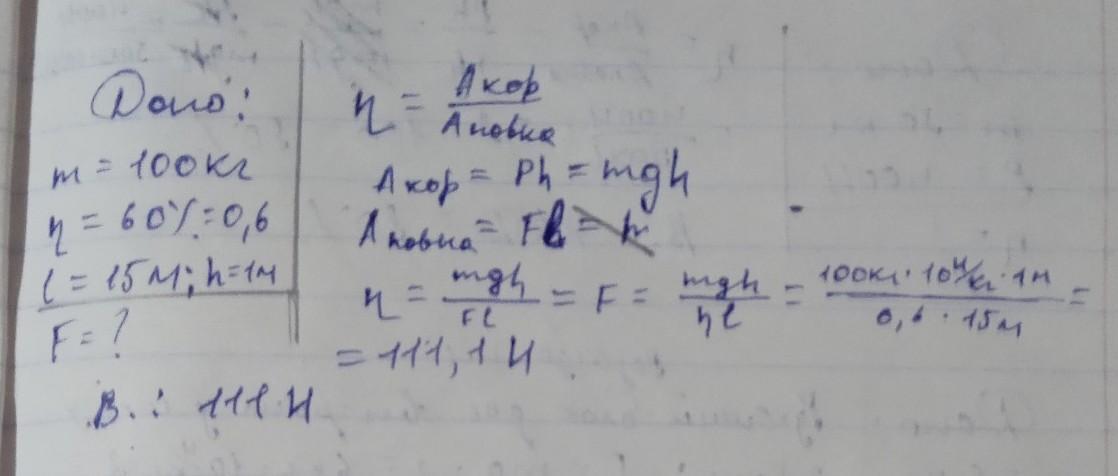 Дано:
m = 100кг
η = 60% = 0,6
l = 15м; h = 1м
F = ?
η = Aкор / Aповна
Aкор = Ph = mgh
Aповна = Fl =
η = mgh / Fl = F = mgh / ηl = 100кг · 10 Н/кг · 1м / 0,6 · 15м =
= 111,1 Н
В.: 111 Н